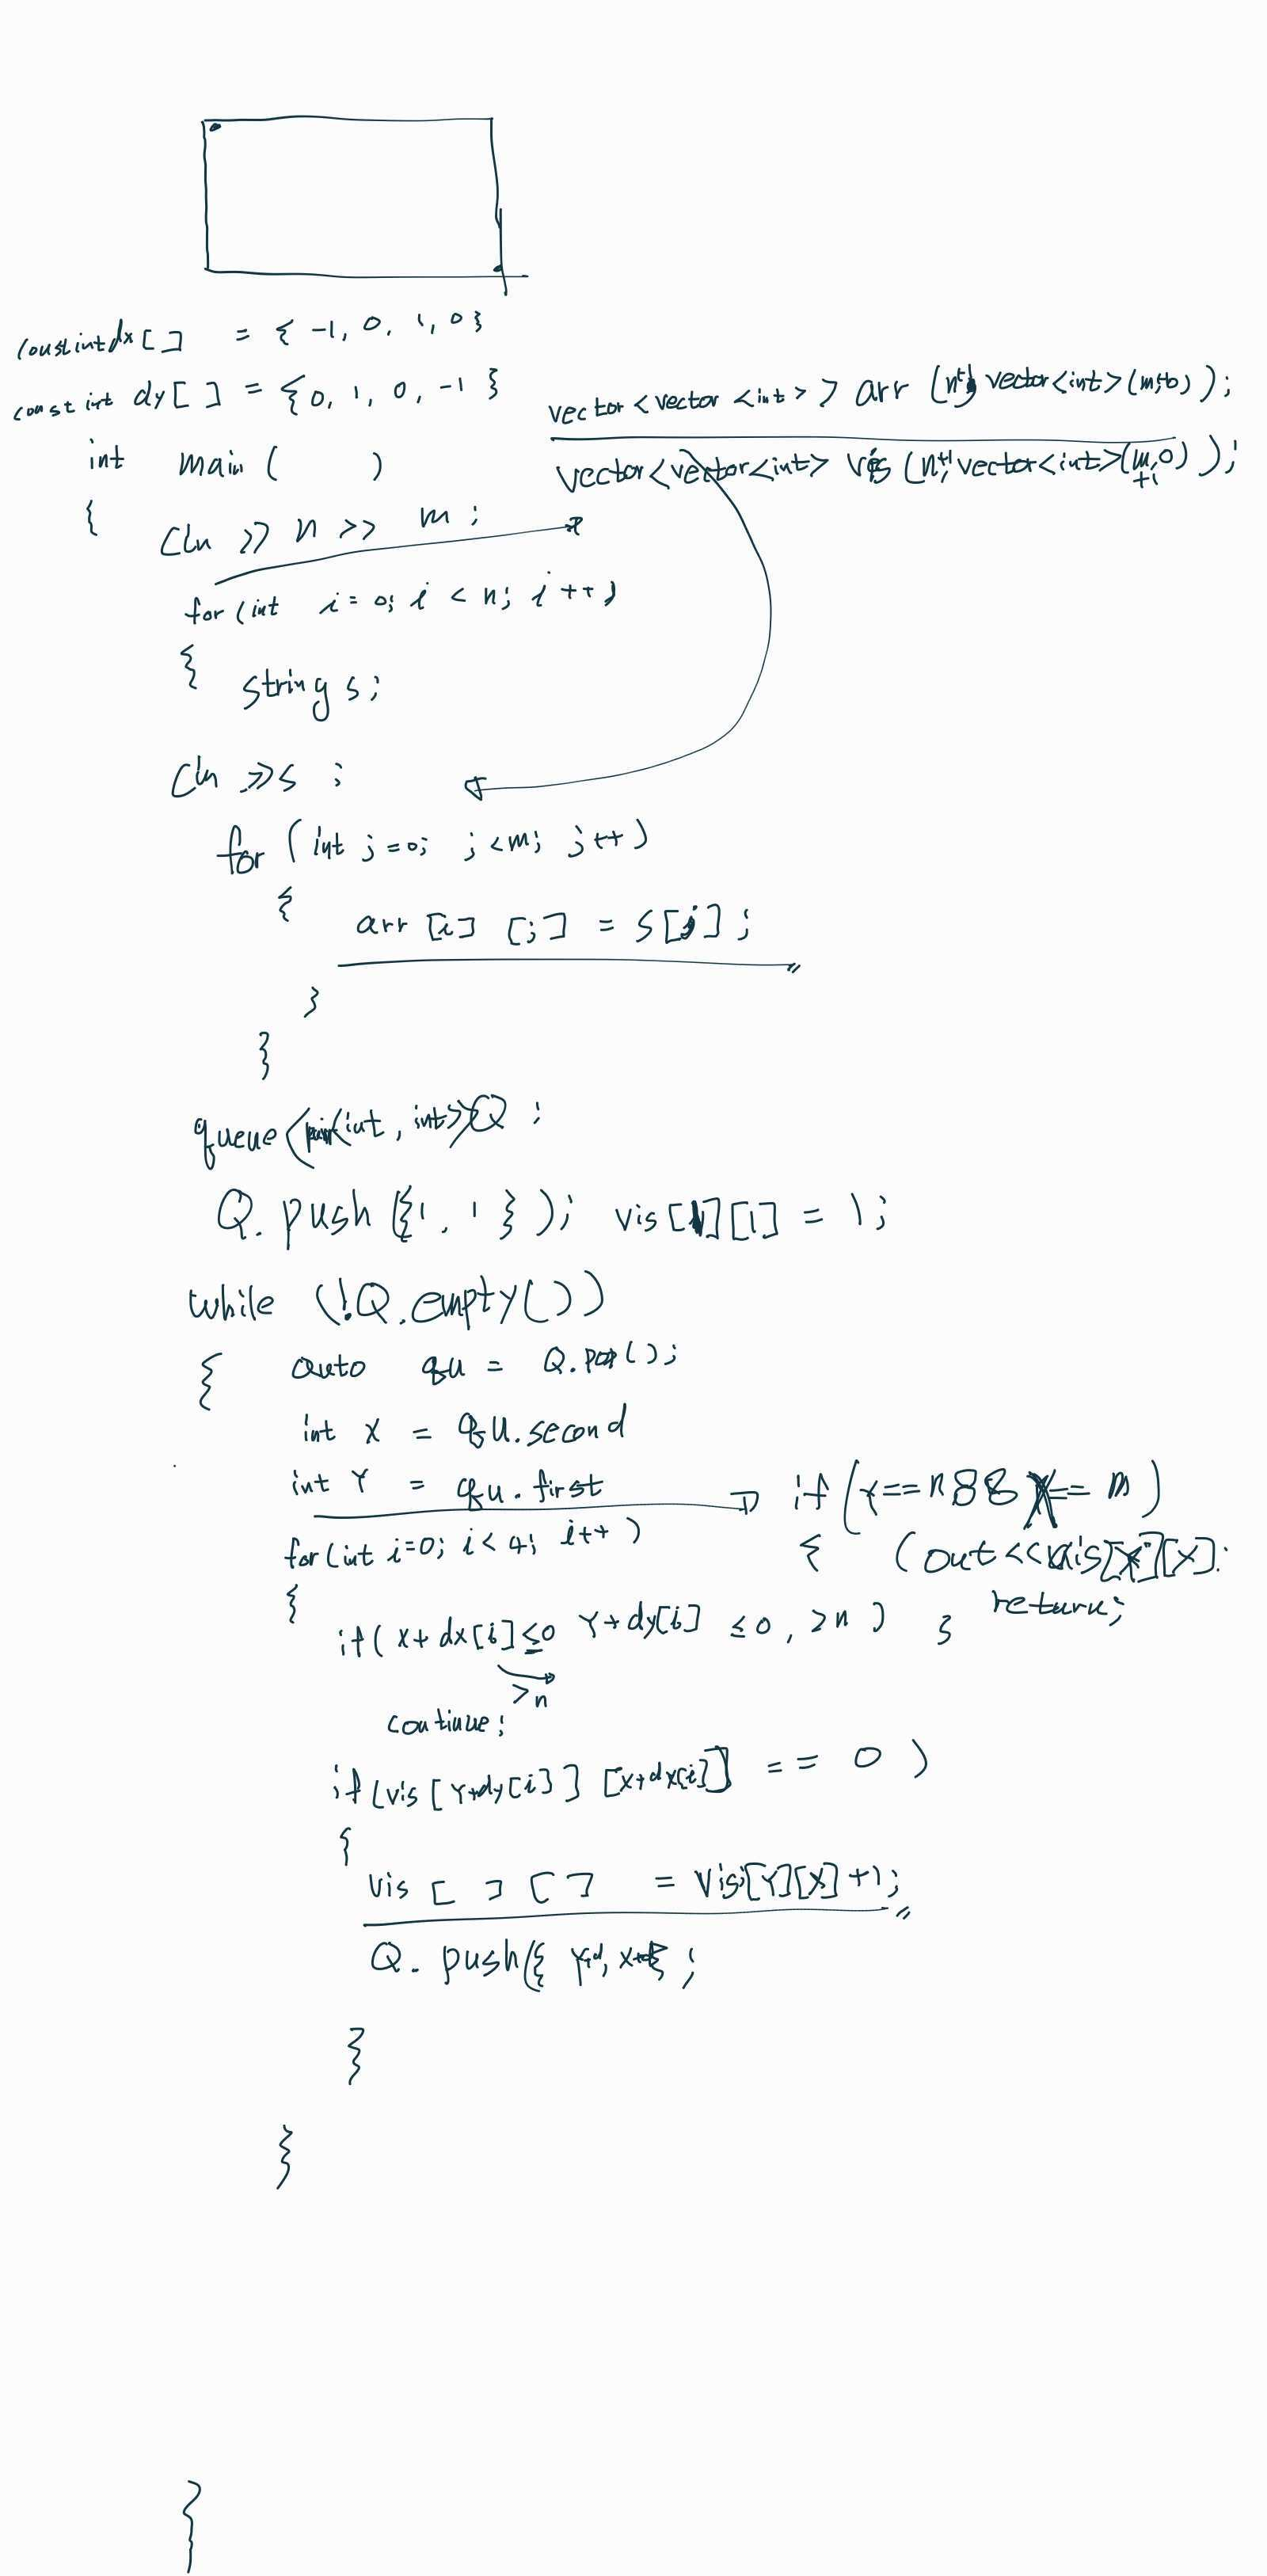 const int dx[ ] = { -1, 0, 1, 0 }
const int dy[ ] = { 0, 1, 0, -1 }
vector<vector<int>> arr (n+1, vector<int>(m+1,0));
int main( )
vector<vector<int> vis (n+1, vector<int>(m+1,0));
{
cin >> n >> m ;
for (int i = 0; i < n; i++)
{
string s;
cin >> s ;
for (int j=0; j<m; j++)
{
arr [i] [j] = s[j] ;
}
}
queue<pair<int, int>> Q ;
Q. push ({1, 1}); vis[1][1] = 1;
while (!Q.empty())
{
auto qu = Q.pop();
int x = qu.second
int Y = qu.first
if (Y==n && X== m)
for (int i=0; i<4; i++)
{ cout << vis[Y][X];
{
return;
if ( x+dx[i] ≤0 Y+dy[i] ≤0, >n ) }
>n
continue;
if (vis [Y+dy[i]] [x+dx[i]] == 0 )
{
vis [ ] [ ] = vis[Y][X] +1;
Q. push({ Y+d, x+d} ;
}
}
}